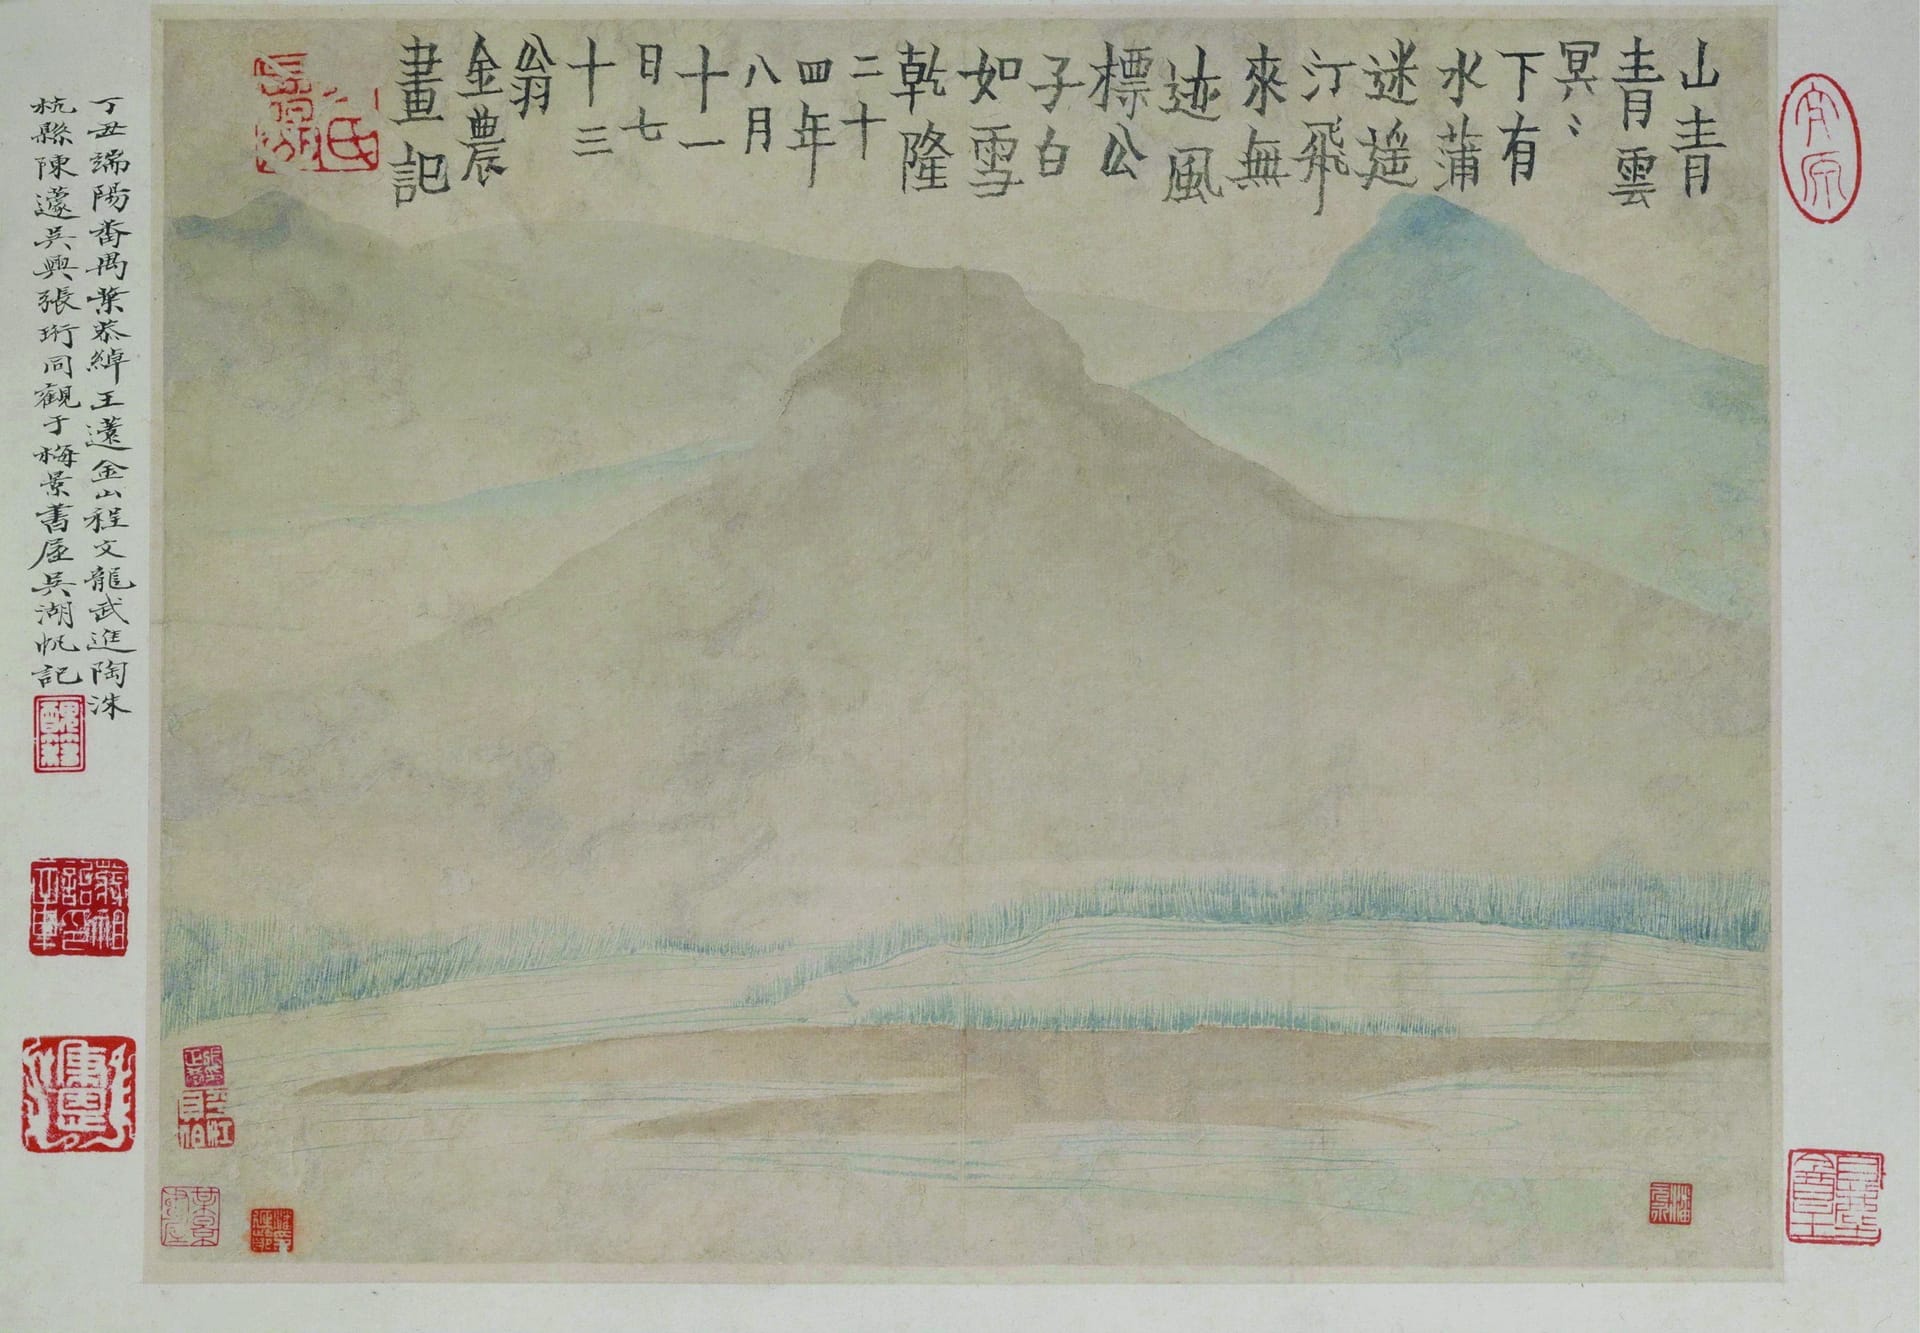 山青
青雲
冥〻
下有
水蒲
迷遥
汀飛
來無
迹風
標公
子白
如雪
乾隆
二十
四年
八月
十一
日七
十三
翁
金農
畫記
丁丑端陽番禺葉恭綽王薳金山程文龍武進陶洙
杭縣陳蘧吳興張珩同觀于梅景書屋吳湖帆記